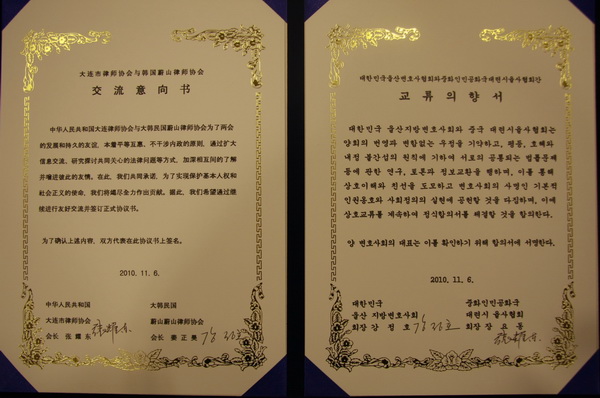 大连市律师协会与韩国蔚山律师协会
交流意向书
中华人民共和国大连律师协会与大韩民国蔚山律师协会为了两会
的发展和持久的友谊，本着平等互惠、不干涉内政的原则，通过扩大
信息交流、研究探讨共同关心的法律问题等方式，加深相互间的了解
并增进彼此的友情。在此，我们共同承诺，为了实现保护基本人权和
社会正义的使命，我们将竭尽全力作出贡献。据此，我们希望通过继
续进行友好交流并签订正式协议书。
为了确认上述内容，双方代表在此协议书上签名。
2010. 11. 6.
中华人民共和国 大韩民国
大连市律师协会 蔚山律师协会
会长 张耀东 会长 姜正昊
대한민국울산변호사협회와중화인민공화국대련시율사협회간
교류의향서
대한민국 울산지방변호사회와 중국 대련시율사협회는
양회의 번영과 변함없는 우정을 기약하고, 평등, 호혜와
내정 불간섭의 원칙에 기하여 서로의 공통되는 법률문제
등에 관한 연구, 토론과 정보교환을 행하며, 이를 통해
상호이해와 친선을 도모하고 변호사회의 사명인 기본적
인권옹호와 사회정의의 실현에 공헌할 것을 다짐하며, 이에
상호교류를 계속하여 정식합의서를 체결할 것을 합의한다.
양 변호사회의 대표는 이를 확인하기 위해 합의서에 서명한다.
2010. 11. 6.
대한민국 중화인민공화국
울산 지방변호사회 대련시 율사협회
회장 강 정 호 회장 장 요 동